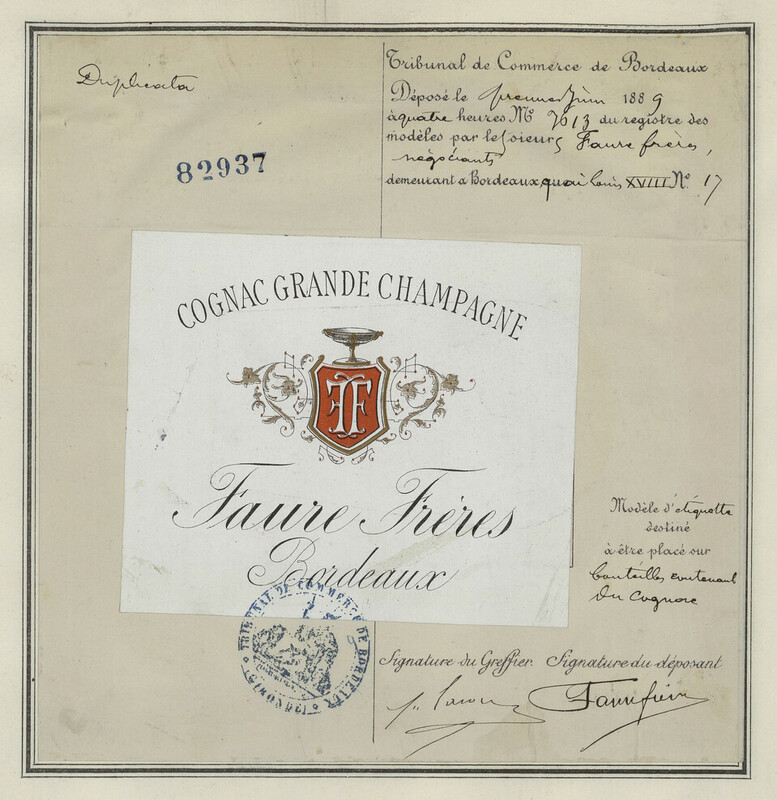 Duplicata
82937
Tribunal de Commerce de Bordeaux
Déposé le premier Juin 1889
à quatre heures No 7613 du registre des
modèles par les sieurs Faure frères,
négociants
demeurant a Bordeaux, quai Louis XVIII No 17
COGNAC GRANDE CHAMPAGNE
FF
Faure Frères
Bordeaux
Modèle d'étiquette
destiné
à être placé sur
bouteilles contenant
du cognac
TRIBUNAL DE COMMERCE DE BORDEAUX
(GIRONDE)
Signature du Greffier. Signature du déposant
Faure frères